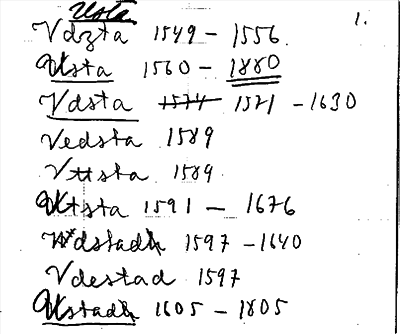 Usta 1.
Vdzta 1549 - 1556
Usta 1560 - 1880
Vdsta 1574 1521 - 1630
Vedsta 1589
Vttsta 1589
Utsta 1591 - 1676
Wdstadh 1597 - 1640
Vdestad 1597
Ustadh 1605 - 1805